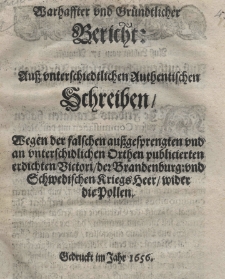 Warhaffter vnd Gründtlicher
Bericht:
Auß vnterschiedtlichen Authentischen
Schreiben/
Wegen der falschen außgesprengten vnd
an vnterschidlichen Orthen publicierten
erdichten Victori/ der Brandenburg: vnd
Schwedischen Kriegs Heer/ wider
die Pollen.
Gedruckt im Jahr 1656.